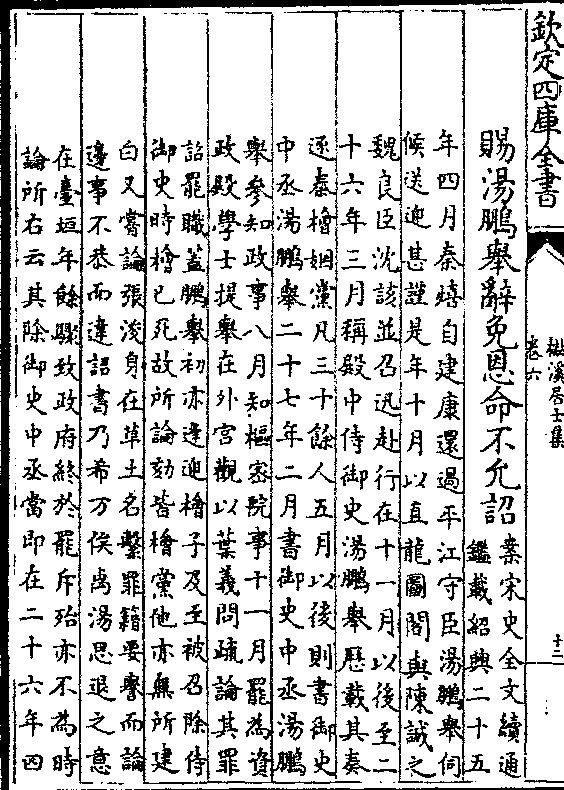 欽定四庫全書
檆溪居士集
卷六
十二
賜湯鵬舉辭免恩命不允詔
案宋史全文續通
鑑載紹興二十五
年四月秦熺自建康還過平江守臣湯鵬舉伺
候送迎甚謹是年十月以直龍圖閣與陳誠之
魏良臣沈該並召迅赴行在十一月以後至二
十六年三月稱殿中侍御史湯鵬舉歷載其奏
逐秦檜姻黨凡三十餘人五月以後則書御史
中丞湯鵬舉二十七年二月書御史中丞湯鵬
舉參知政事八月知樞密院事十一月罷為資
政殿學士提舉在外宮觀以葉義問疏論其罪
詔罷職蓋鵬舉初亦逢迎檜子及至被召除侍
御史時檜已死故所論劾皆檜黨他亦無所建
白又嘗論張浚身在草土名繫罪籍要譽而論
邊事不恭而違詔書乃希万俟卨湯思退之意
在臺垣年餘驟致政府終於罷斥殆亦不為時
論所右云其除御史中丞當即在二十六年四